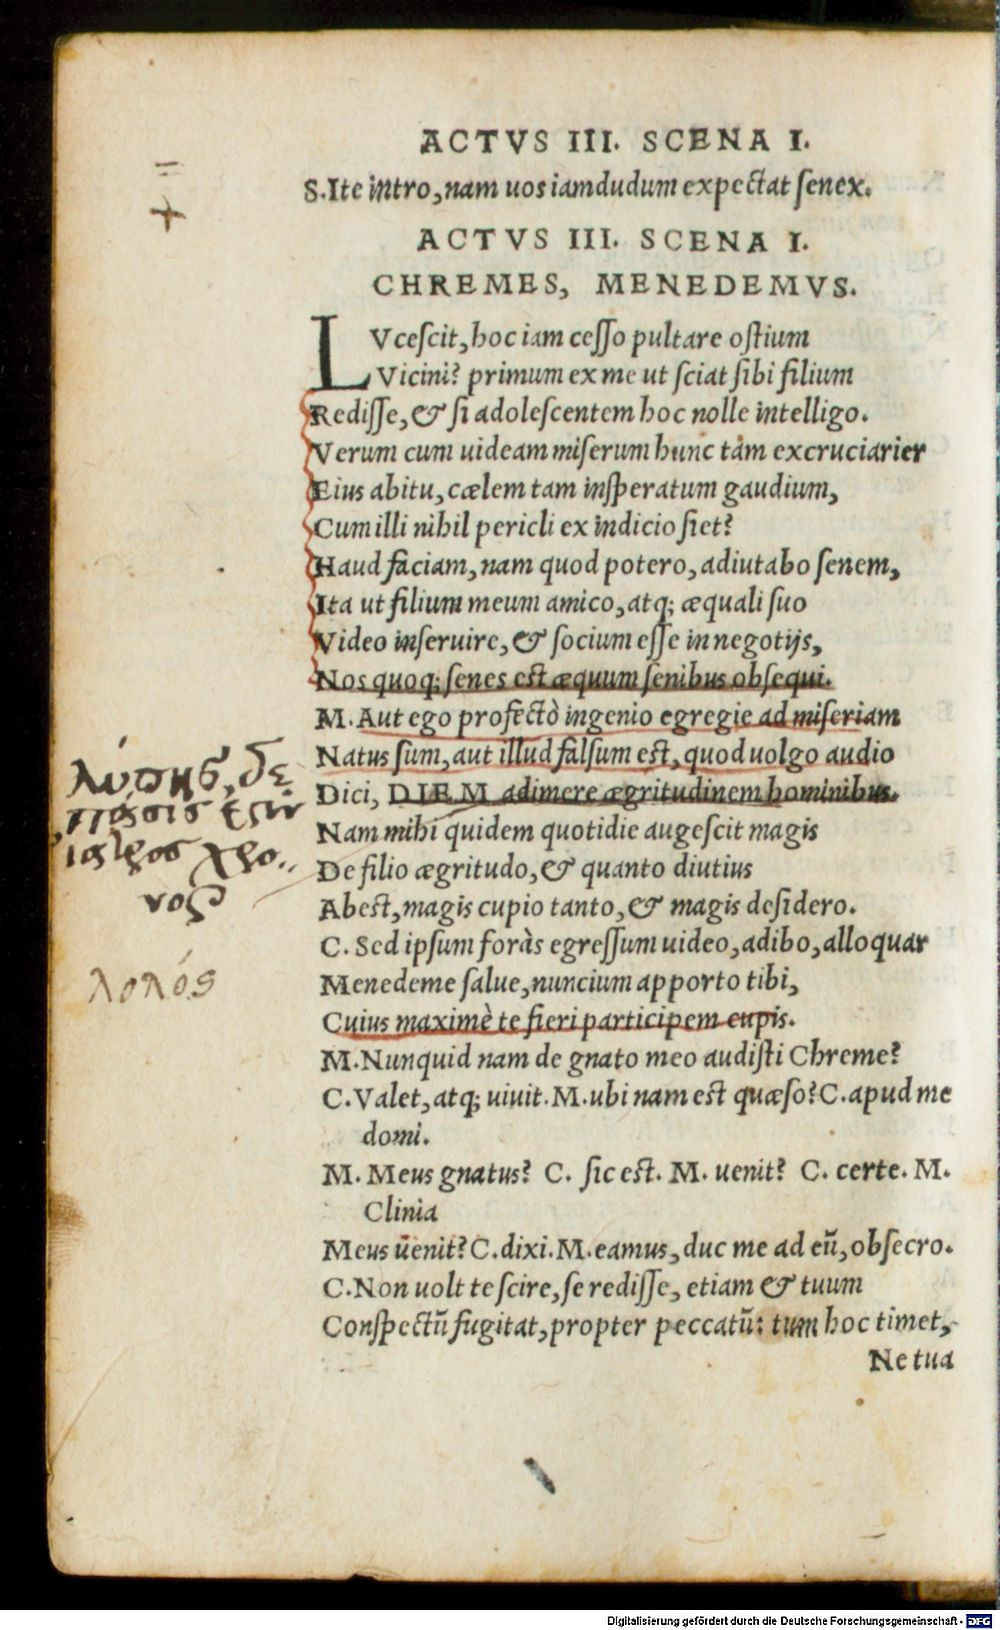 ACTVS III. SCENA I.
S.Ite intro, nam uos iamdudum expectat ſenex.
ACTVS III. SCENA I.
CHREMES, MENEDEMVS.
LVceſcit, hoc iam ceſſo pultare oſtium
Vicini? primum ex me ut ſciat ſibi filium
Rediſſe, & ſi adoleſcentem hoc nolle intelligo.
Verum cum uideam miſerum hunc tàm excruciarier
Eius abitu, cælem tam inſperatum gaudium,
Cum illi nihil pericli ex indicio ſiet?
Haud faciam, nam quod potero, adiutabo ſenem,
Ita ut filium meum amico, atq; æquali ſuo
Video inſeruire, & ſocium eſſe in negotijs,
Nos quoq; ſenes est æquum ſenibus obſequi.
M. Aut ego profectò ingenio egregie ad miſeriam
Natus ſum, aut illud falſum est, quod uolgo audio
Dici, DIEM adimere ægritudinem hominibus.
λύπης δε
πάσις ἐστιν
ἰατρος χρο..
νος
λοπός
Nam mihi quidem quotidie augeſcit magis
De filio ægritudo, & quanto diutius
Abest, magis cupio tanto, & magis deſidero.
C. Sed ipſum foràs egreſſum uideo, adibo, alloquar
Menedeme ſalue, nuncium apporto tibi,
Cuius maximè te fieri participem cupis.
M. Nunquid nam de gnato meo audiſti Chreme?
C. Valet, atq; uiuit. M. ubi nam est quæſo? C. apud me
domi.
M. Meus gnatus? C. ſic est. M. uenit? C. certe. M.
Clinia
Meus uenit? C. dixi. M. eamus, duc me ad eũ, obſecro.
C. Non uolt te ſcire, ſe rediſſe, etiam & tuum
Conſpectũ fugitat, propter peccatũ: tum hoc timet,
Ne tua
Digitalisierung gefördert durch die Deutsche Forschungsgemeinschaft - DFG